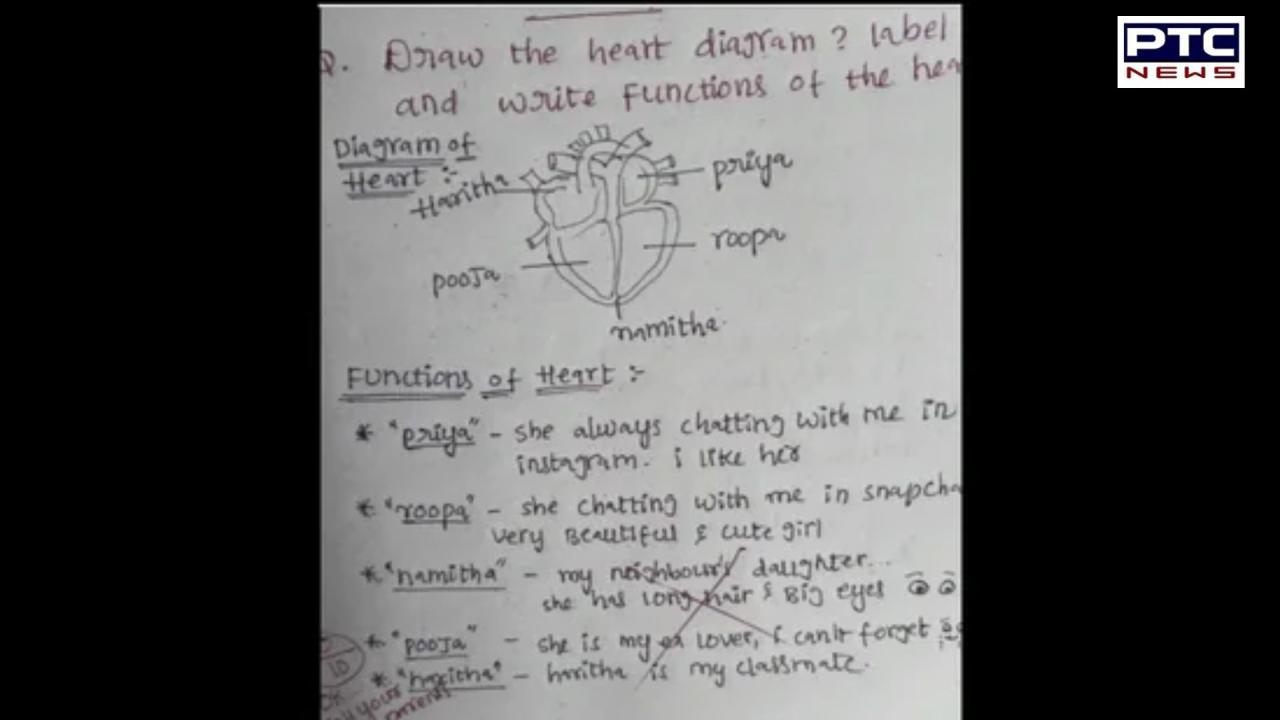 PTC
NEWS
Q. Draw the heart diagram ? label
and write functions of the
Diagram of
Heart :-
Haritha
priya
roopa
pooja
namitha
Functions of Heart :-
* "priya" - she always chatting with me in
instagram. i like her
* "roopa" - she chatting with me in
very Beautiful & cute girl
* "namitha" - my neighbour's daughter...
she has long hair & Big eyes
* "pooja" - she is my ex lover, i can't forget
* "haritha" - haritha is my classmate.
10
your